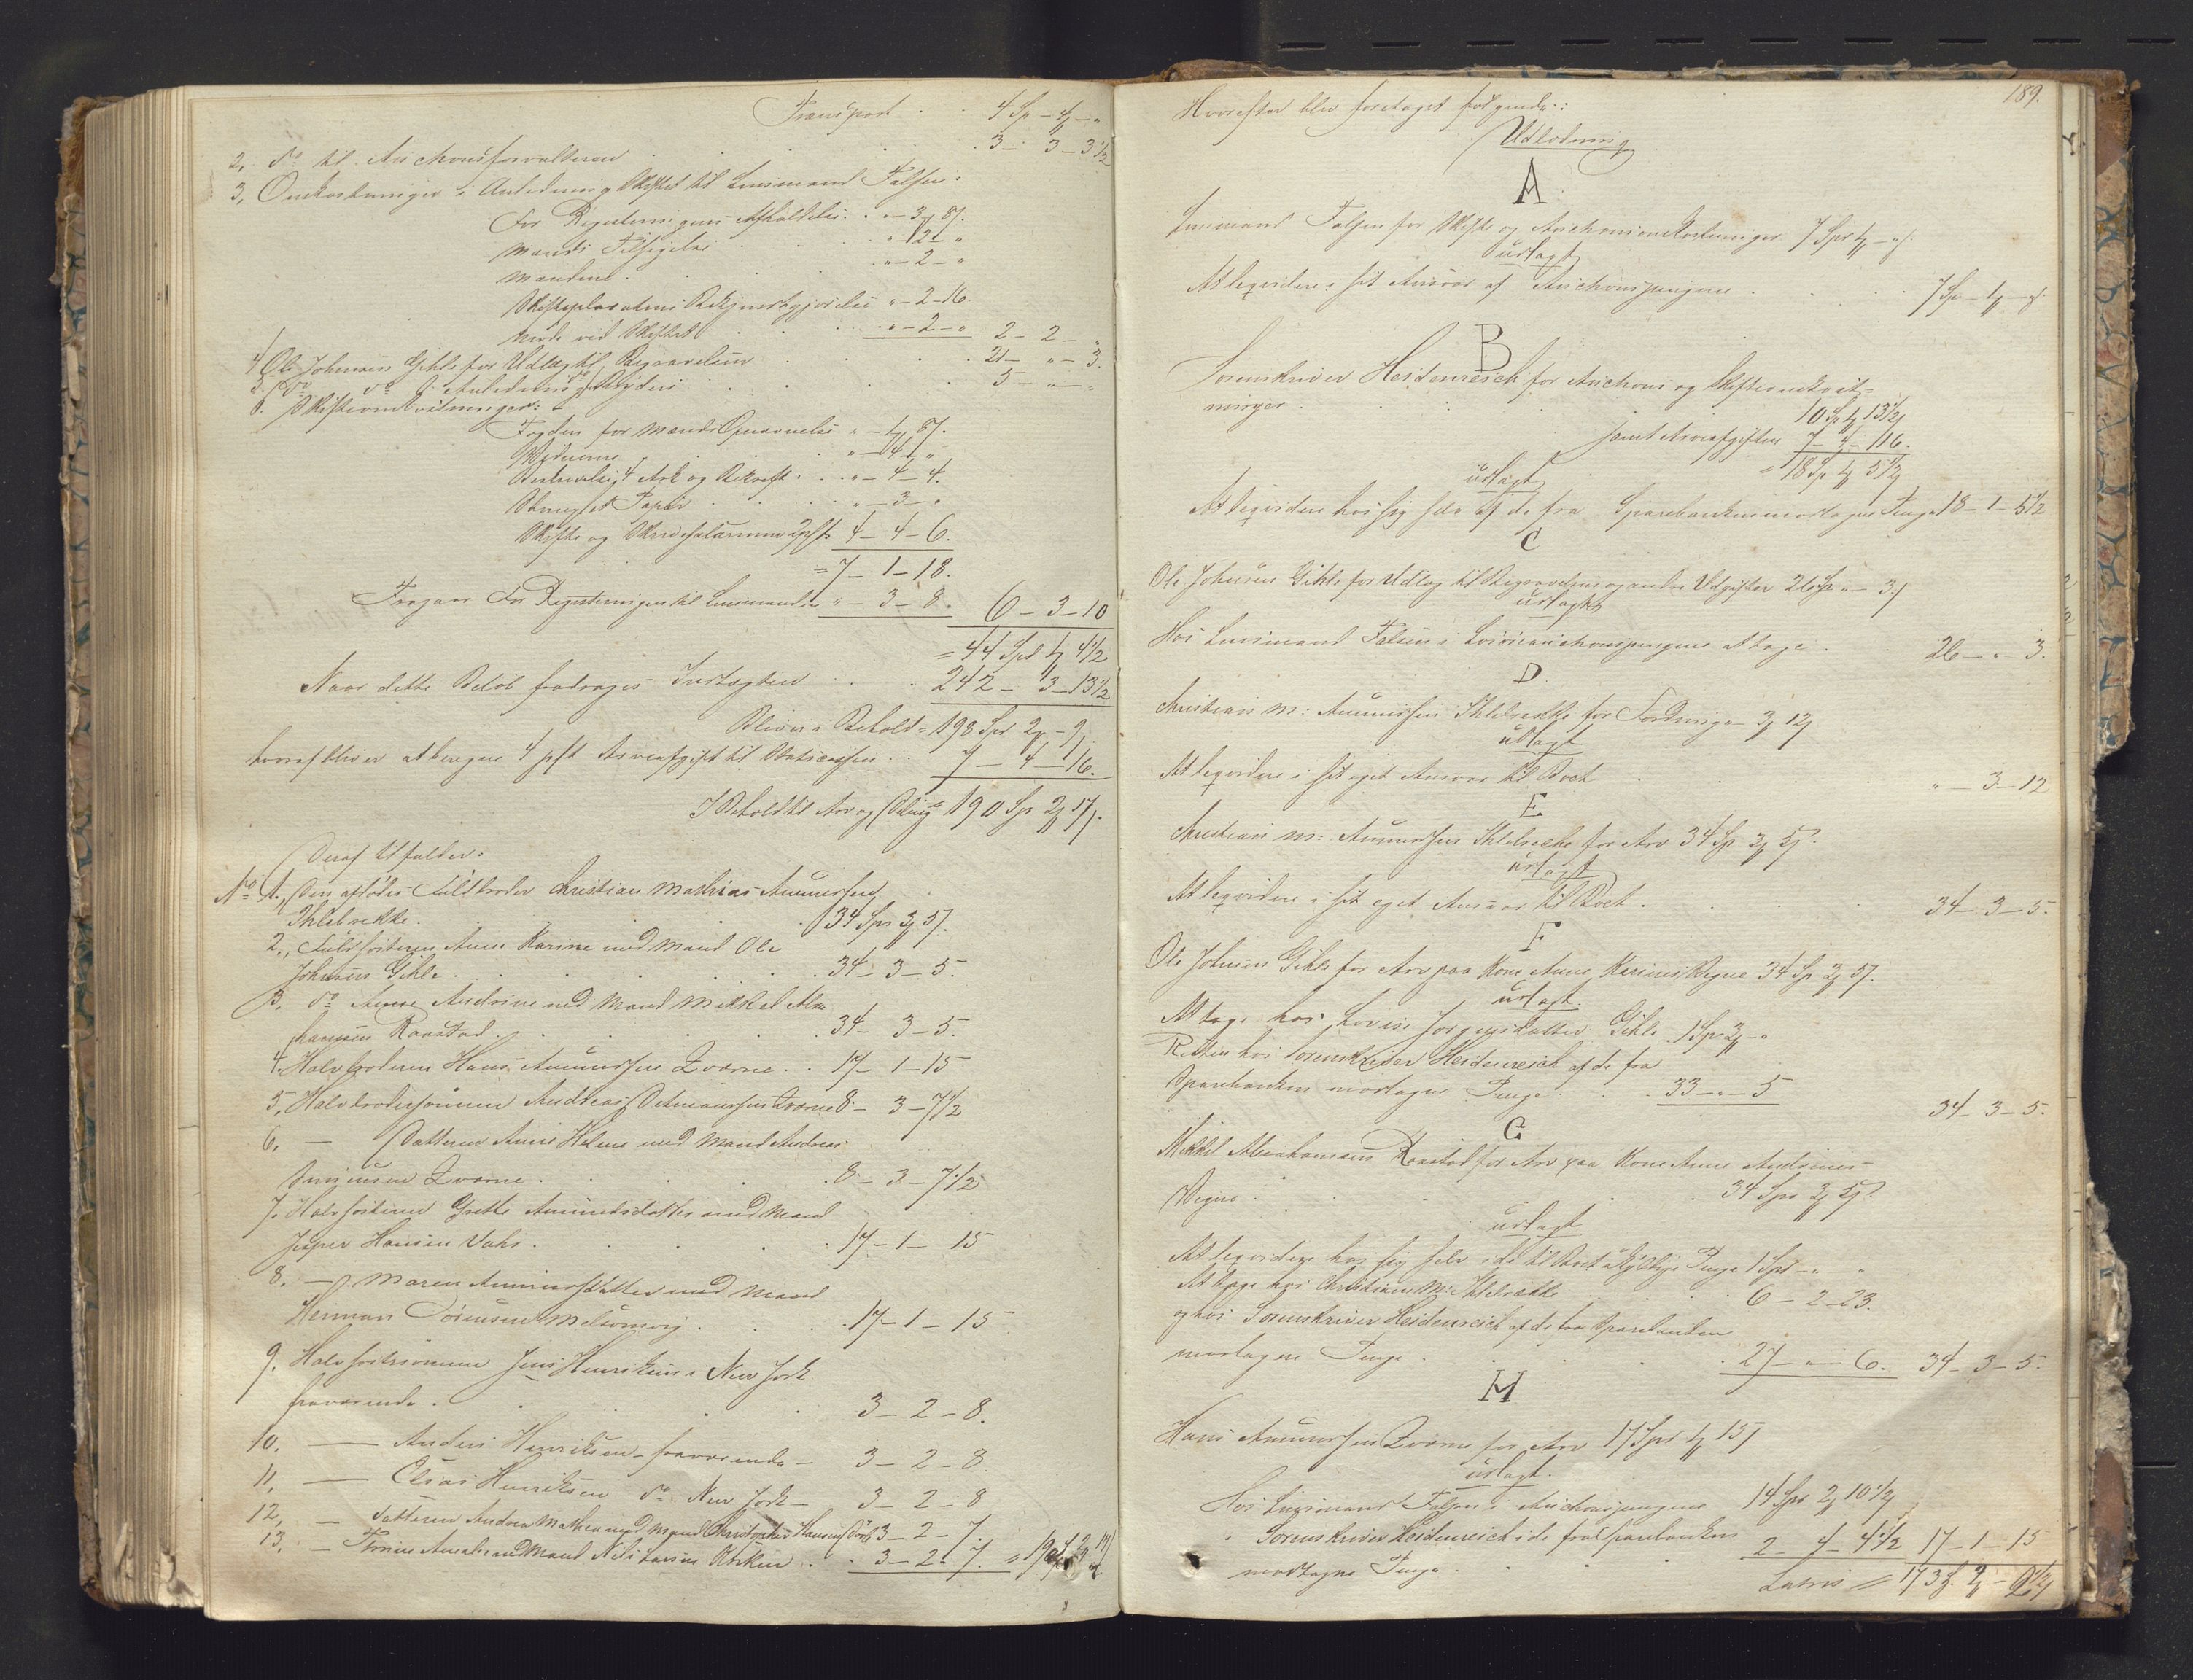 Transport . . 4 Sp - 4 - "
2, do til Auctionsforvalteren . . . 3 - 3 - 3 1/2
3, Omkostninger i Anledning Skiftet til Lensmand Falsen:
For Registeringens Afholdelse . " - 3 - 8
Mænds Tilsigelse . . " - 2 - "
Mændene . . . " - 2 - "
Skifteplacatens Bekjendtgjørelse " - 2 - 16.
Møde ved Skiftet . . " - 2 - " 2 - 2 - "
4, Ole Johnsen Gihle for Udlæg til Begravelsen . . . 21 - " - 3.
5, do do i Anledning . . . 5 - " - "
6. Skifteomkostninger:
Fogden for Mænds Opnævnelse " - 1 - 8
" - 4 - "
Beskrivelse, 4 Ark og . . " - 4 - 4.
Stemplet Papir . . " - 3 - "
Skifte og Skriversalarium 2 pCt 4 - 4 - 6.
= 7 - 1 - 18.
Fragaar for Registeringen til Lensmanden " - 3 - 8. 6 - 3 - 10
= 44 Spd 1 4 1/2
Naar dette Beløb fradrages Indtægten . . 242 - 3 - 13 1/2
Bliver i Behold = 198 Spd 2 - 9
hvoraf bliver at beregne 4 pCt Arveafgift til Statscassen . . 7 - 4 - 16.
I Behold til Arv og Deling = 190 Sp 2 17
Deraf tilfalder:
No 1, Den afdødes Fuldbroder Christian Mathias Amundsen
Ihlebrekke . . . 34 Spd 3 5
2, Fuldsøsteren Anne Karine med Mand Ole
Johnsen Gihle . . . 34 - 3 - 5.
3, do Anne Andrine med Mand Mikkel Abra-
hamsen Raastad . . . 34 - 3 - 5.
4, Halvbroderen Hans Amundsen Zvarne . . 17 - 1 - 15
5, Halvbrodersønnen Andreas Zvarne 8 - 3 - 7 1/2
6, — Datteren Anne Helene med Mand Andreas
Zvarne . . . 8 - 3 - 7 1/2
7. Halvsøsteren Grethe Amundsdatter med Mand
Jesper Hansen Vahr . . . 17 - 1 - 15
8. — Maren Amundsdatter med Mand
Herman Sørensen Melsomvig . . . 17 - 1 - 15
9. Halvsøstersønnen Jens Henriksen i New York
fraværende . . . 3 - 2 - 8.
10. — Anders Henriksen - fraværende - 3 - 2 - 8
11, — Elias Henriksen do New York - 3 - 2 - 8
12, — Datteren Andrea Mathea med Mand Christopher Hansen 3 - 2 - 7.
13. — Amalie med Mand Nils Larsen . . 3 - 2 - 7. =
189.
Hvorefter blev foretaget følgende:
Udlodning
A
Lensmand Falsen for Skifte og Auctionsomkostninger 7 Spd 1 - "
udlagt
At liqvidere i sit Ansvar af Auctionspengene . . . 7 Sp - 1 - "
B
Sorenskriver Heidenreich for Auctions og Skifteomkost-
ninger . . . 10 Sp 1 13 1/2
samt Arveafgiften 7 - 4 - 16.
= 18 Sp 1 5 1/2
udlagt
At liqvidere hos sig selv af de fra Sparebanken modtagne Penge 18 - 1 - 5 1/2
C
Ole Johnsen Gihle for Udlæg til Begravelsen og andre Udgifter 26 Sp " - 3
udlagt
Hos Lensmand Falsen i Løsøreauctionspengene at tage . . 26 - " - 3.
D.
Christian M: Amundsen Ihlebrekke for Fordring - 3 12
udlagt
At liqvidere i sit eget Ansvar til Boet . . . " - 3 - 12
E
Christian M: Amundsen Ihlebrekke for Arv 34 Sp 3 5
udlagt
At liqvidere i sit eget Ansvar til Boet . . . 34 - 3 - 5.
F
Ole Johnsen Gihle for Arv paa Kone Anne Karines Vegne 34 Sp 3 5
udlagt.
At tage hos Lovise Jørgensdatter Gihle 1 Spd 3 - "
Resten hos Sorenskriver Heidenreich af de fra
Sparebanken modtagne Penge . . 33 - " - 5 34 - 3 - 5.
G
Mikkel Abrahamsen Raastad for Arv paa Kone Anne Andrines
Vegne . . . 34 Spd 3 5
udlagt
At liqvidere hos sig selv i de til Boet skyldige Penge 1 Spd - " - "
At tage hos Christian M: Ihlebrekke . . . 6 - 2 - 23.
og hos Sorenskriver Heidenreich af de fra Sparebanken
modtagne Penge . . . 27 - " - 6. 34 - 3 - 5.
H
Hans Amundsen Zvarne for Arv 17 Spd 1 15
udlagt.
Hos Lensmand Falsen i Auctionspengene 14 Spd 2 10 1/2
" Sorenskriver Heidenreich i de fra Sparebanken
modtagne Penge . . . 2 - 4 - 4 1/2 17 - 1 - 15
Lateris = 173 Sp. 2 - 2 1/2